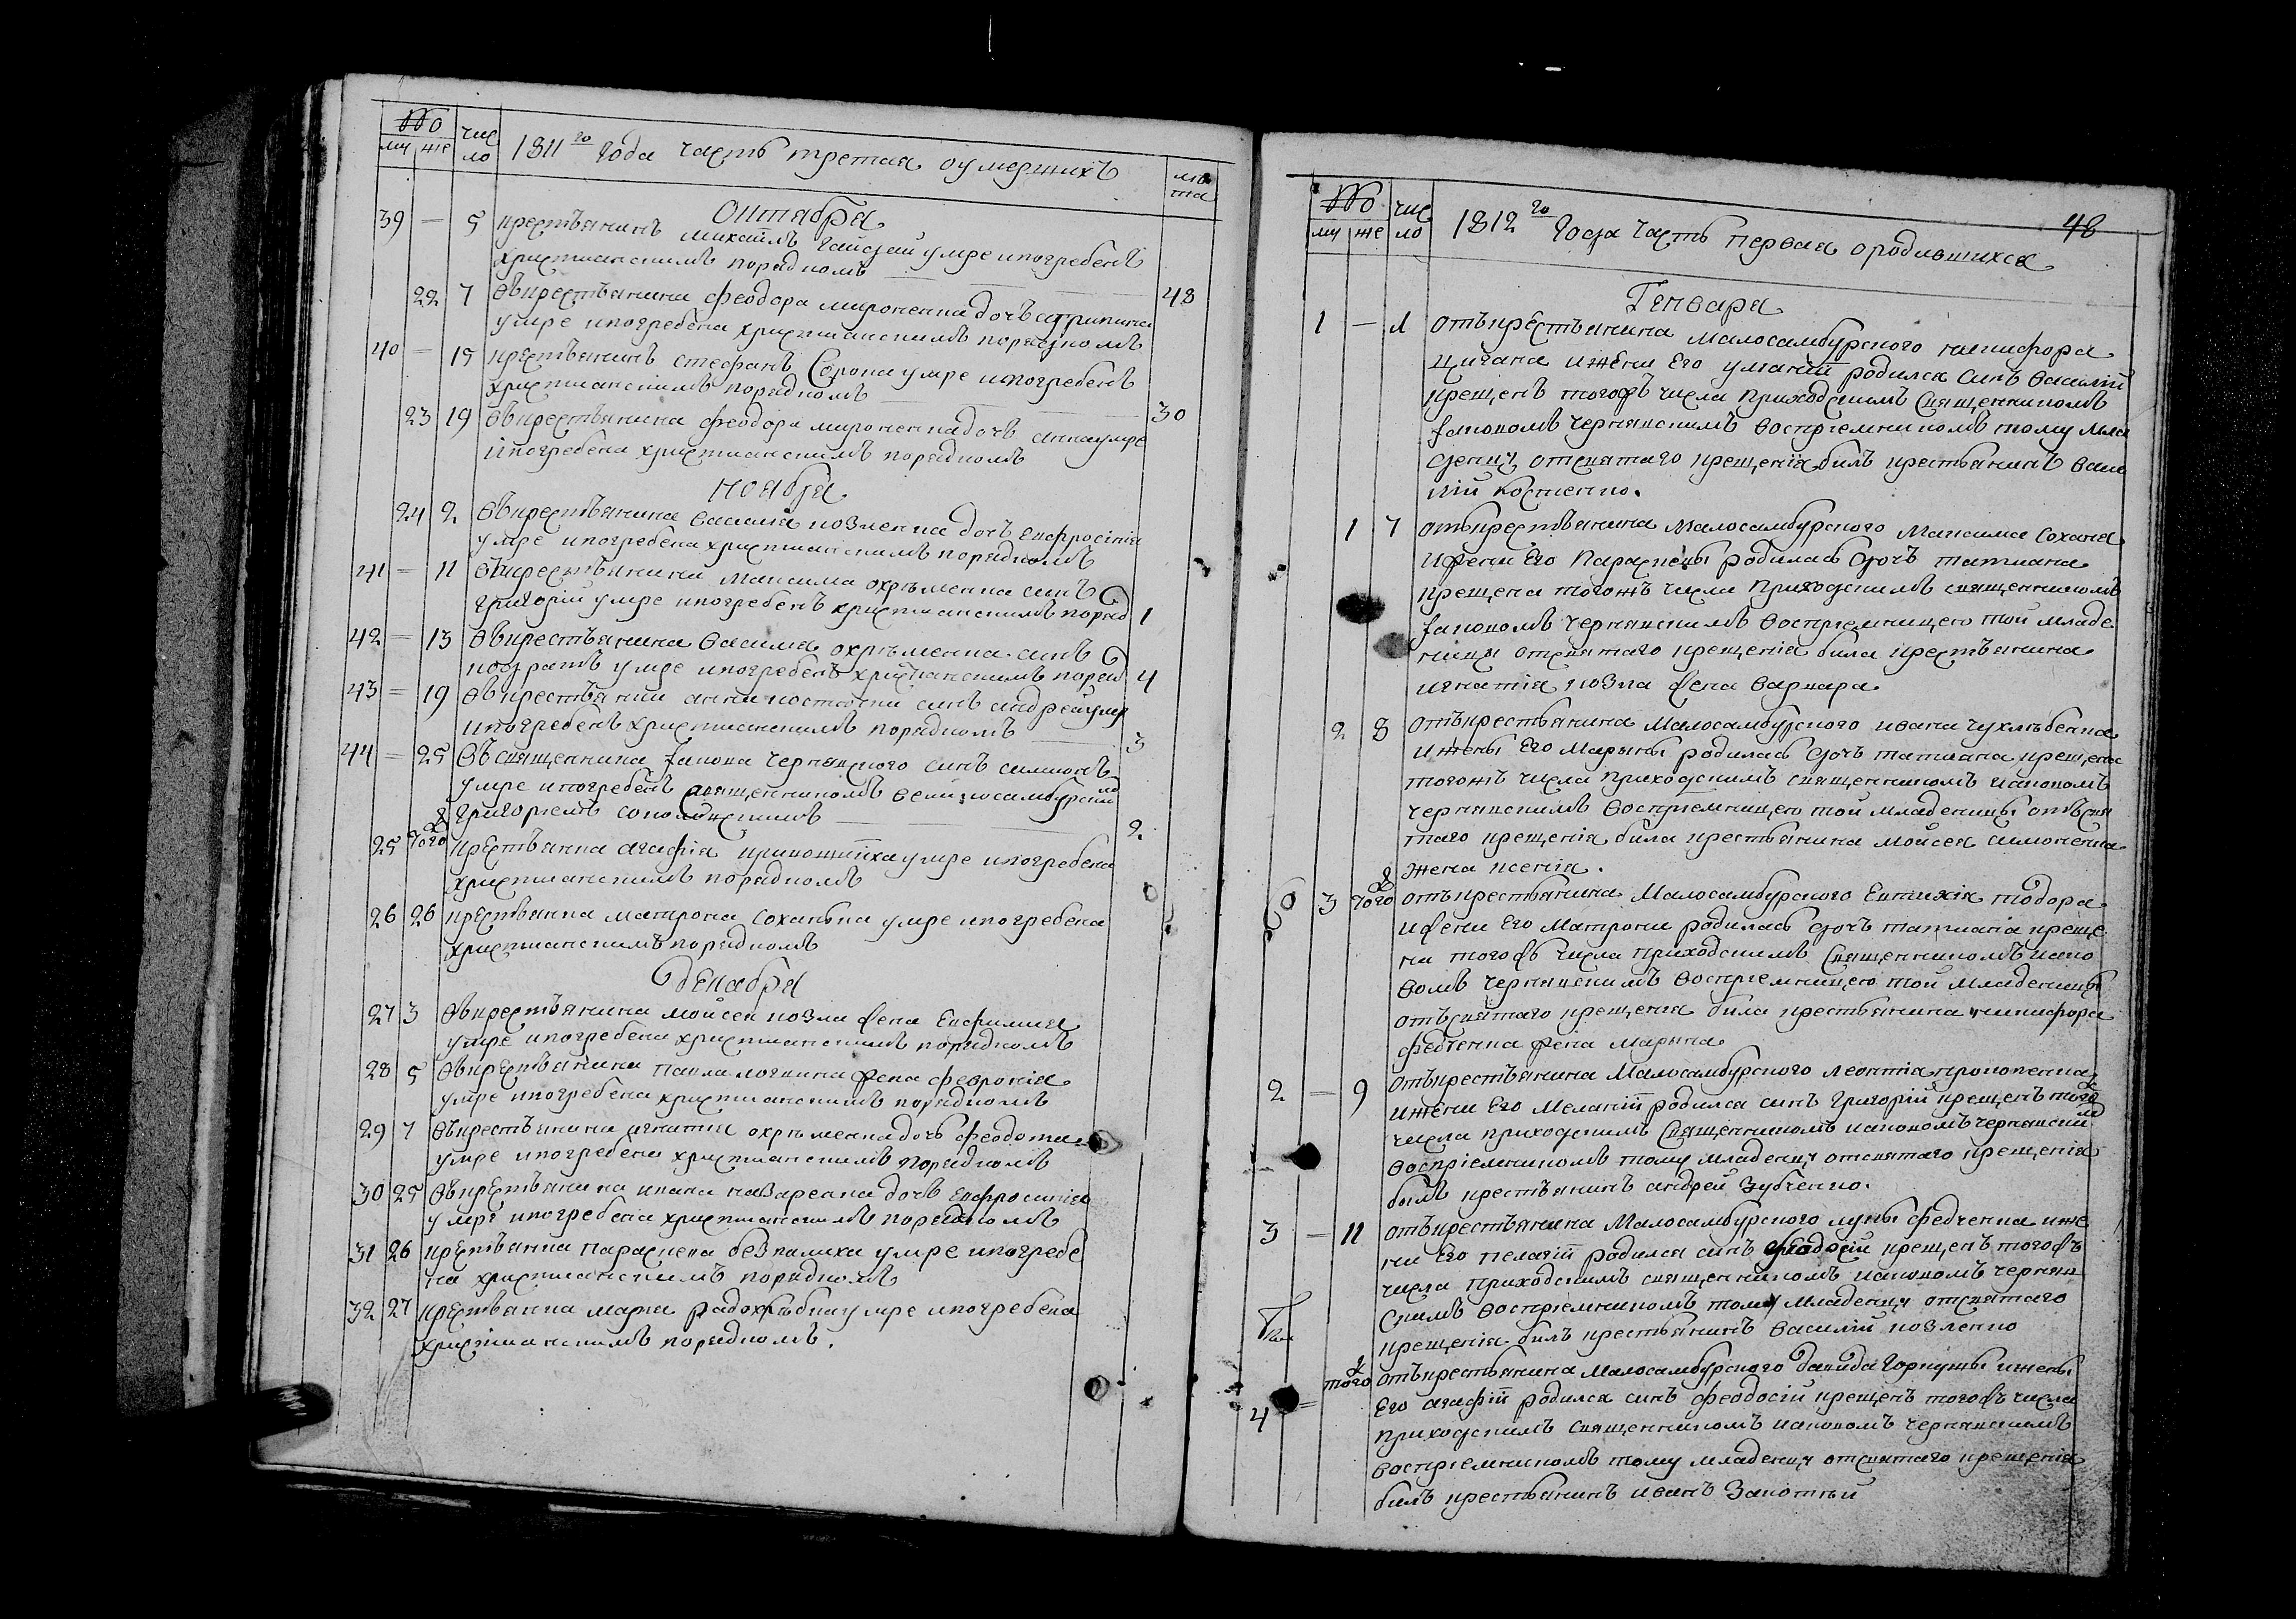 № чис
му же ло 1811го Года часть третая оумершихъ лѣ
та
Октабра
39 — 5 крестьянинъ Михаилъ Гайдай умре ипогребенъ
християнскимъ порядкомъ 48
22 7 Ѿ крестьянина Феодора мироненка дочъ агрипина
умре ипогребена християнскимъ порядкомъ
40 — 15 крестьянинъ стефанъ Сорока умре ипогребенъ
християнскимъ порядкомъ 30
23 19 Ѿ крестьянина феодора мироненка дочъ анна умре
ипогребена християнскимъ порядкомъ
ноября
24 2 Ѿ крестьянина василия козленка дочъ Евфросінія
умре ипогребена християнскимъ порядкомъ
41 — 11 Ѿ крестьянина максима охрѣменка синъ
григорій умре ипогребенъ християнскимъ поряд 1
42 — 13 Ѿ крестьянина василия охрѣменка синъ
кодратъ умре ипогребенъ християнскимъ поряд 4
43 — 19 Ѿ крестьянки анни синъ андрей умр
ипогребенъ християнскимъ порядкомъ 3
44 — 25 Ѿ священника Іакова Чернявского синъ симионъ
умре ипогребенъ священникомъ великосамбурскимъ
григориемъ 2
25 того ж крестьянка агафія умре ипогребена
християнскимъ порядкомъ
26 26 крестьянка матрона соханька умре ипогребена
християнскимъ порядкомъ
декабря
27 3 Ѿ крестьянина мойсея козла жена Евфимия
умре ипогребена християнскимъ порядкомъ
28 5 Ѿ крестьянина Павла логвина жена февронія
умре ипогребена християнскимъ порядкомъ
29 7 Ѿ крестьянина игнатия охрѣменка дочъ феодота
умре ипогребена християнскимъ порядкомъ
30 25 Ѿ крестьянина ивана назаренка дочъ Евфросинія
умре ипогребена християнскимъ порядкомъ
31 26 крестьянка параскева безпалиха умре ипогребе
на християнскимъ порядкомъ
32 27 крестьянка мария умре ипогребена
християнскимъ порядкомъ.
№ чис
му же ло 1812го Года Часть первая ородившихся 48
Генваря
1 — 1 отъкрестьянина малосамбурского никифора
цигана ижени Его улянїи родился синъ василій
крещенъ тогожъ числа приходскимъ священникомъ
Іаковомъ чернявскимъ воспріемникомъ тому мла
денцу отсвятаго крещенія билъ крестьянинъ васи
лій костенко.
1 7 отъкрестьянина малосамбурского максима сохана
ижени Его параскевы родилась дочъ татиана
крещена тогожъ числа приходскимъ священникомъ
Іаковомъ чернявскимъ воспріемницею той младе
ницы отсвятаго крещенія била крестьянина
игнатія козла жена варвара
2 8 отъкрестьянина малосамбурского ивана чухлѣбенка
ижены Его марины родилась дочъ татиана крещена
тогожъ числа приходскимъ священникомъ иаковомъ
чернявскимъ воспріемницею той младеницы отъсвя
таго крещенія била крестьянина мойсея симоненка
жена ксенія.
3 того ж отъкрестьянина малосамбурского Евтихія тодора
ижени Его матрони родилась дочъ татиана креще
на тогожъ числа приходскимъ священникомъ иако
вомъ чернявскимъ воспріемницею той младеницы
отъсвятаго крещенія била крестьянина никифора
федченка жена марина
2 — 9 отъкрестьянина малосамбурского леонтія прокопенка
ижени Его меланїи родился синъ григорій крещенъ тогож
числа приходскимъ священникомъ иаковомъ чернявским
воспріемникомъ тому младенцу отсвятаго крещенія
былъ крестьянинъ андрей зубченко.
3 — 11 отъкрестьянина малосамбурского луки федченка иже
ни Его пелагїи родился синъ феодосій крещенъ тогожъ
числа приходскимъ священникомъ иаковомъ черняв
скимъ воспріемникомъ тому младенцу отсвятаго
крещенія билъ крестьянинъ василий козленко
4 — того ж отъкрестьянина малосамбурского давида горкуши ижены
Его агафїи родился синъ феодосій крещенъ тогожъ числа
приходскимъ священникомъ иаковомъ чернявскимъ
воспріемникомъ тому младенцу отсвятаго крещенія
билъ крестьянинъ иванъ